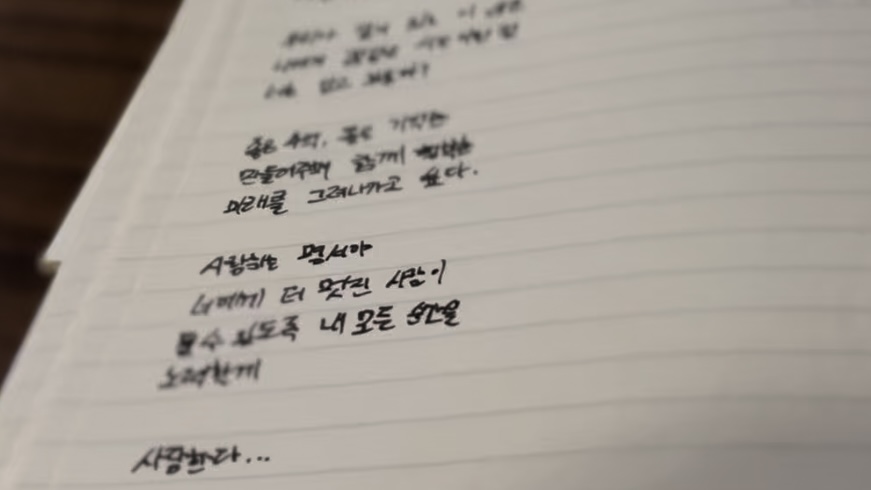 좋은 추억, 좋은 기억을
만들어주며 함께 행복한
미래를 그려나가고 싶다.
사랑하는 명서야
너에게 더 멋진 사람이
될 수 있도록 내 모든 순간을
노력할게
사랑한다...